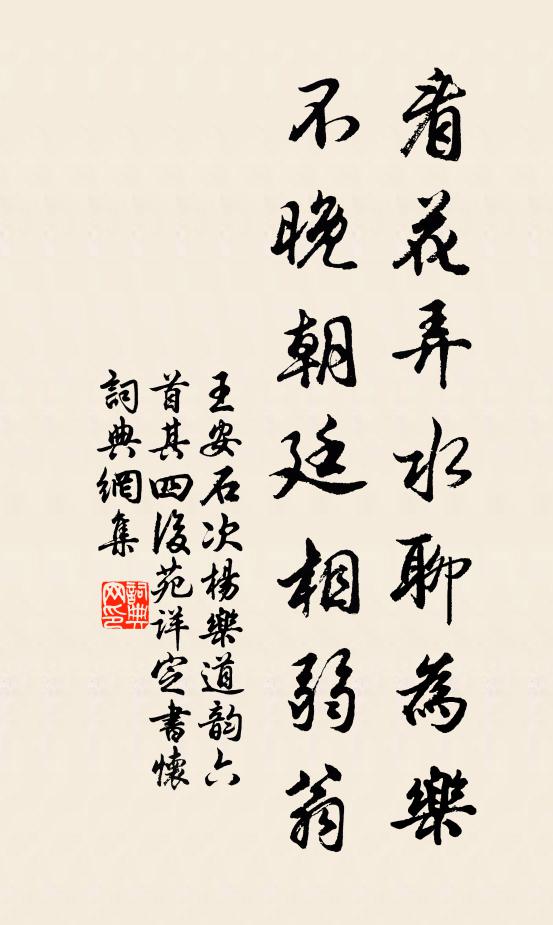 看花弄水聊為樂
不晚朝廷相弱翁
王安石次楊樂道韵六
首其四後苑詳定書懷
詞典網集
詞典
网印